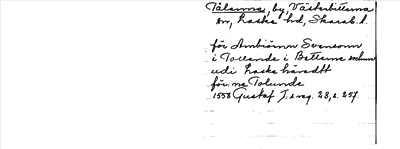 Tålanna, by, Västerbitterna
sn, Laske hd, Skarab. l.
för Ambiörnn Svensonn
i Tollande i Betterne sochnn
udi Laske häredtt
för ne Tolunde
1558 Gustaf I:s reg. 28, s. 257.